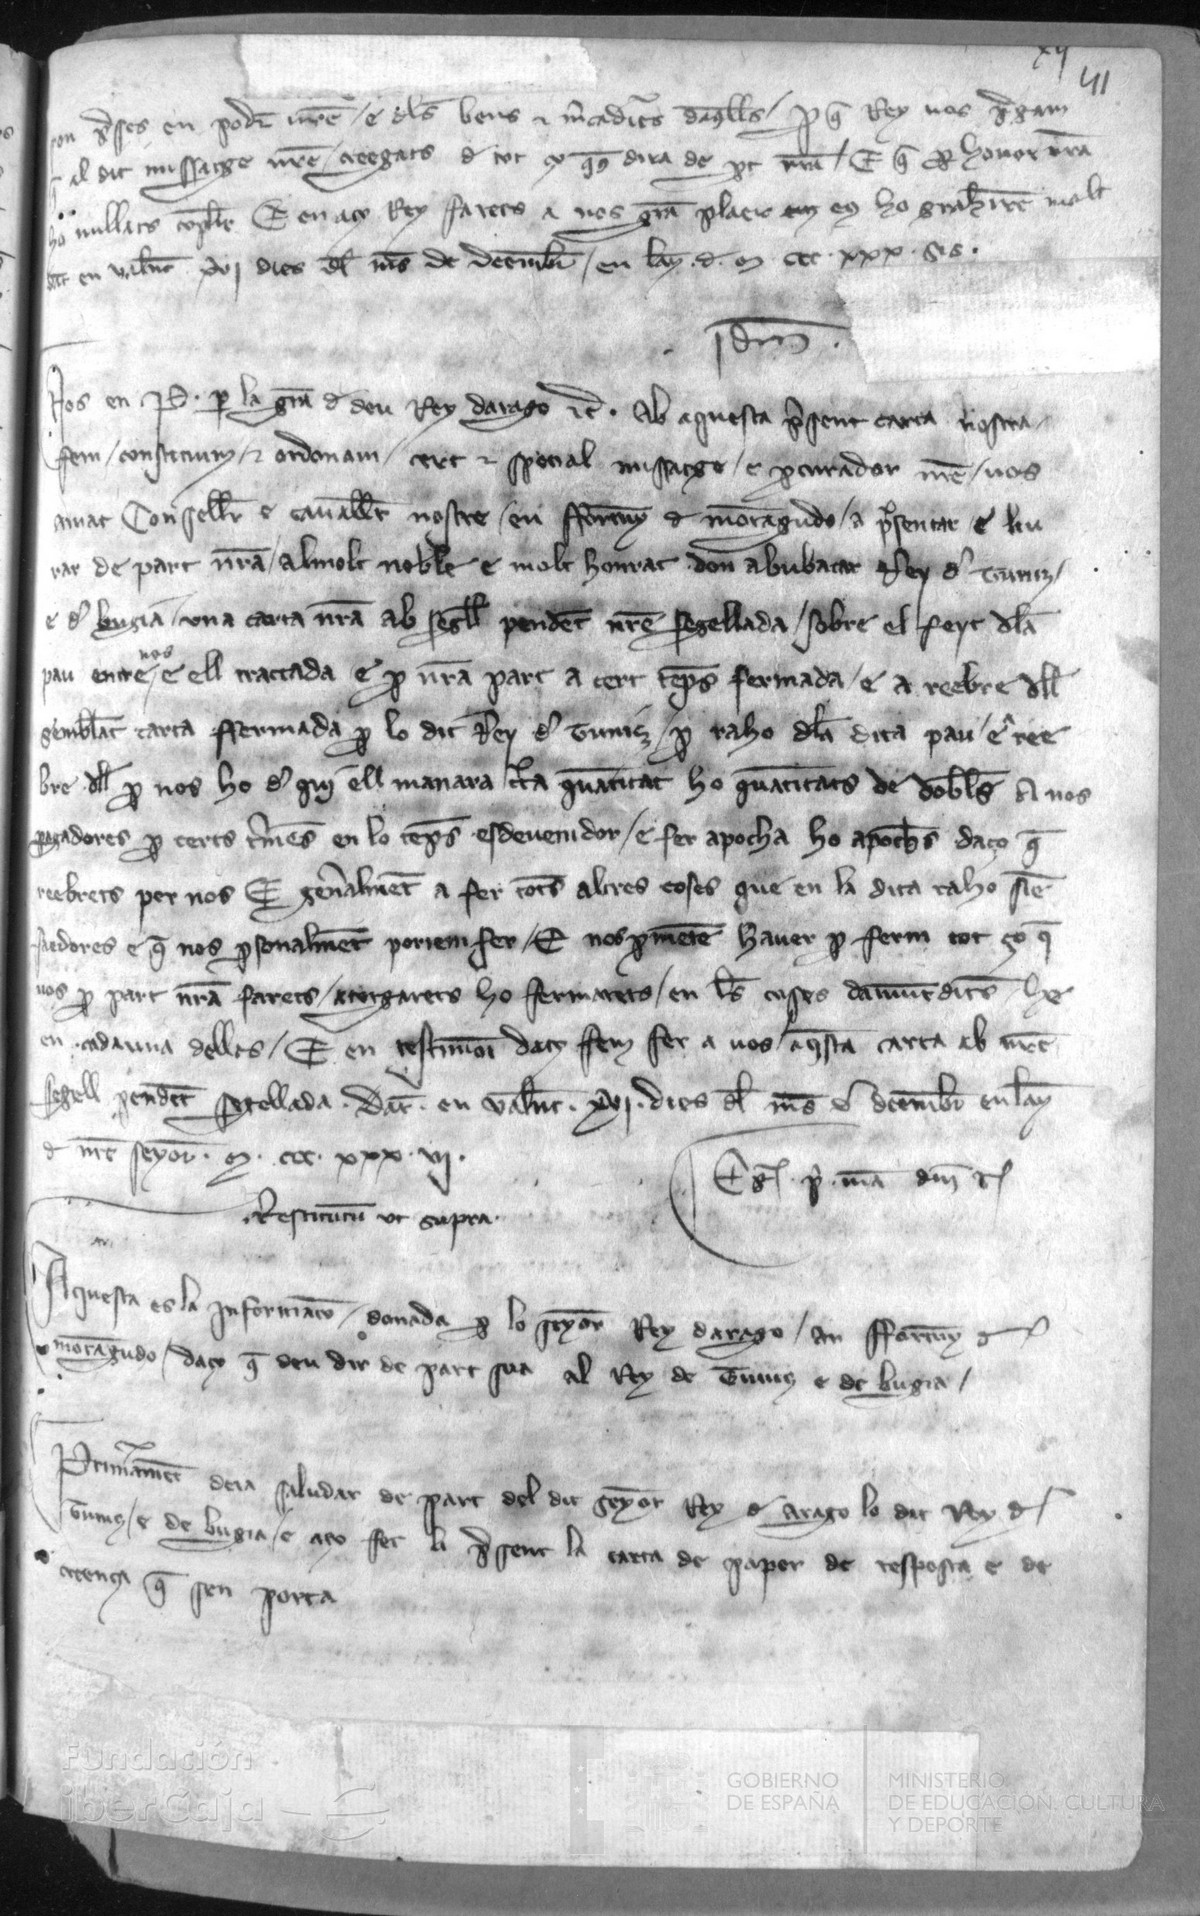 xij
41
son p̄ses en poder n̄re / e dels bens ⁊ mercaderies daq̄lls / p q̄ Rey vos p̄gam
q̄ al dit missatge n̄re / creegats de tot ço q̄us dira de p̄t n̄ra / E q̄ p honor n̄ra
ho vullats cōplir E en aço Rey farets a nos gr̄a plaer ho grahirē molt
dat en valēt xvj dies del mes de deembr̄ / en lany d m ccc xxx sis .
. Idm̄ .
Nos en P. p la gr̄a d deu Rey darago etc̄ . Ab aquesta p̄sent carta nostra
fem / constituim / ⁊ ordonam / cert ⁊ special missatge / e p̄curador n̄re / vos
amat Conseller e cavaller nostre / en fferrny d mōtagudo / a p̄sentar e liu
rar de part n̄ra / al molt noble e molt honrat don abubacar Rey d Tuniz /
e d bugia / una carta n̄ra ab segell pendēt n̄re segellada / sobre el feyt dla
pau entre nos e ell tractada e p n̄ra part a cert tēps fermada / e a reebre dll
semblāt carta ffermada p lo dit Rey d Tuniz / p raho dla dita pau / e ree
bre dll p nos ho d qui ell manara c̄ta quātitat ho quātitats de dobles A nos
pagadores p certs t̄mēs en lo tēps esdevenidor / e fer apocha ho apoches daço q̄
reebrets per nos E gen̄alment a fer totes altres coses que en la dita raho siē
faedores e q̄ nos p̄sonalmēt poriem fer / E nos p̄metē haver p ferm tot ço q̄
vos p part n̄ra farets / atorgarets ho fermarets / en les coses damūtdites he
en cadauna delles / E en testimoi daço fem fer a vos / aq̄sta carta ab n̄re
segell pendēt segellada . Dat̄ . en valēt . xvj . dies dl mes d deembr̄ en lany
d n̄re seyor . m . ccc . xxx . vj .
p . mā dm̄ R̄
. Restitutū ut supra .
Aquesta es la informacō / donada p lo seyor Rey darago / an fferrny d
mōtagudo / daço q̄ deu dir de part sua al Rey de Tuniz e de bugia /
Primāmēt deia saludar de part del dit seyor Rey d Arago lo dit Rey d
Tuniz / e de bugia / e aço fet li p̄sent la carta de paper de resposta e de
creença q̄ sen porta
Fundación
iberCaja
GOBIERNO
DE ESPAÑA
MINISTERIO
DE EDUCACIÓN, CULTURA
Y DEPORTE